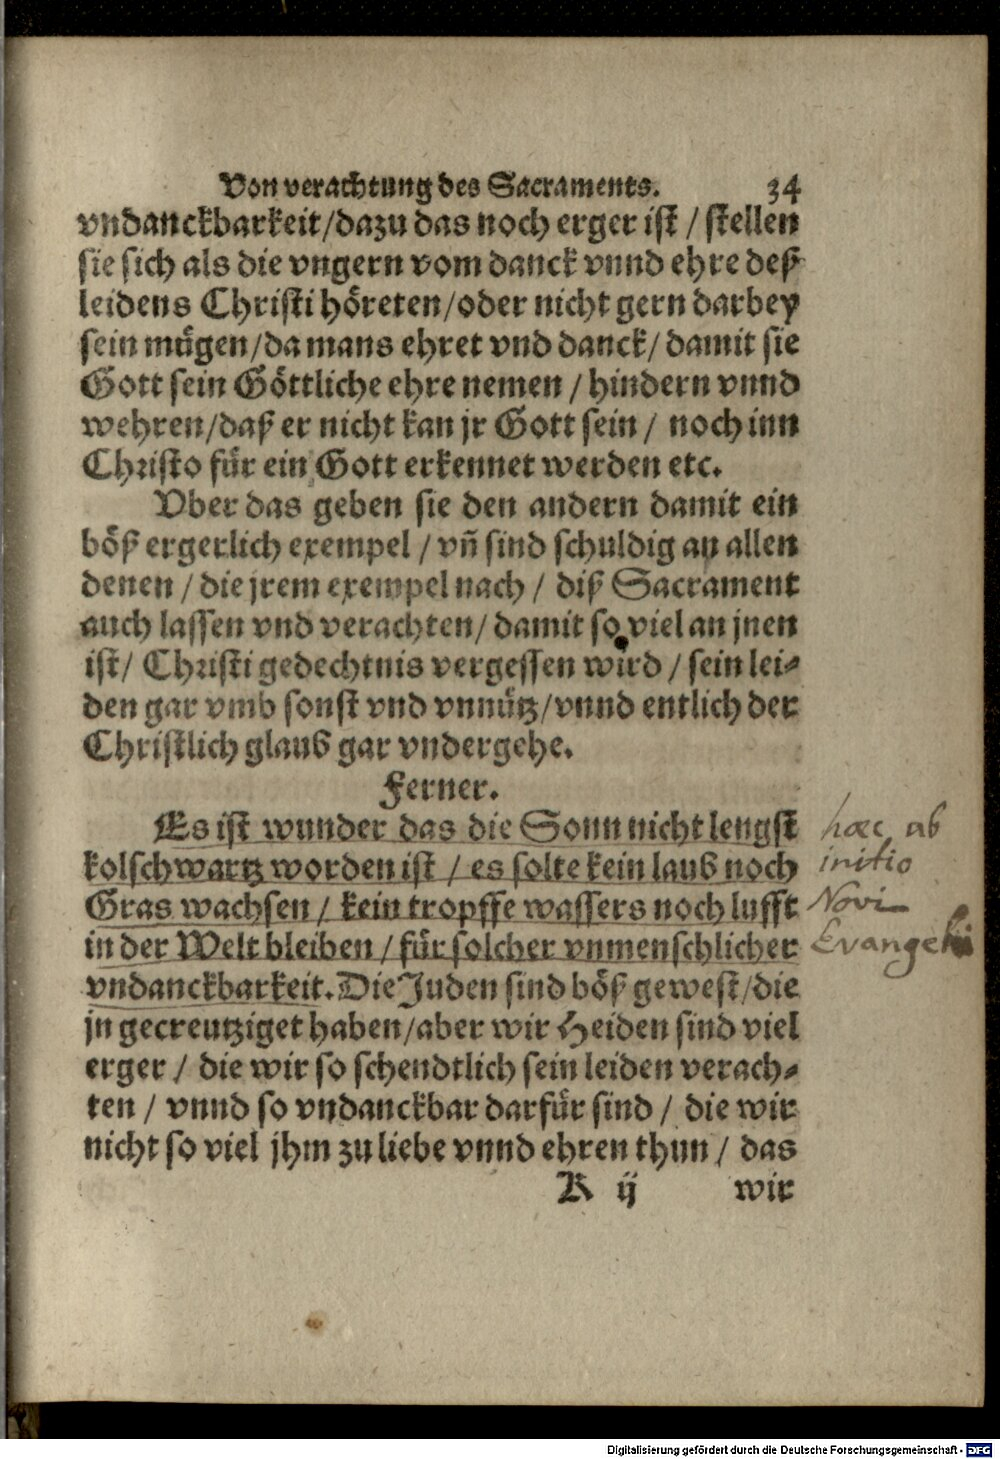 Von verachtung des Sacraments. 34
vndanckbarkeit/dazu das noch erger ist / stellen
sie sich als die vngern vom danck vnnd ehre deß
leidens Christi höreten/oder nicht gern darbey
sein mügen/da mans ehret vnd danck/ damit sie
Gott sein Göttliche ehre nemen / hindern vnnd
wehren/daß er nicht kan jr Gott sein / noch inn
Christo für ein Gott erkennet werden etc.
Vber das geben sie den andern damit ein
böß ergerlich exempel / vñ sind schuldig an allen
denen / die jrem exempel nach / diß Sacrament
auch lassen vnd verachten/ damit so viel an jnen
ist/ Christi gedechtnis vergessen wird / sein lei-
den gar vmb sonst vnd vnnütz/vnnd entlich der
Christlich glaub gar vndergehe.
Ferner.
Es ist wunder das die Sonn nicht lengst
kolschwartz worden ist / es solte kein laub noch
Gras wachsen / kein tropffe wassers noch lufft
in der Welt bleiben / für solcher vnmenschlicher
vndanckbarkeit. Die Juden sind böß gewest/die
jn gecreutziget haben/aber wir Heiden sind viel
erger / die wir so schendtlich sein leiden verach-
ten / vnnd so vndanckbar darfür sind / die wir
nicht so viel jhm zu liebe vnnd ehren thun / das
K ij wir
hæc ab
initio
Novi
Evangelii
Digitalisierung gefördert durch die Deutsche Forschungsgemeinschaft - DFG